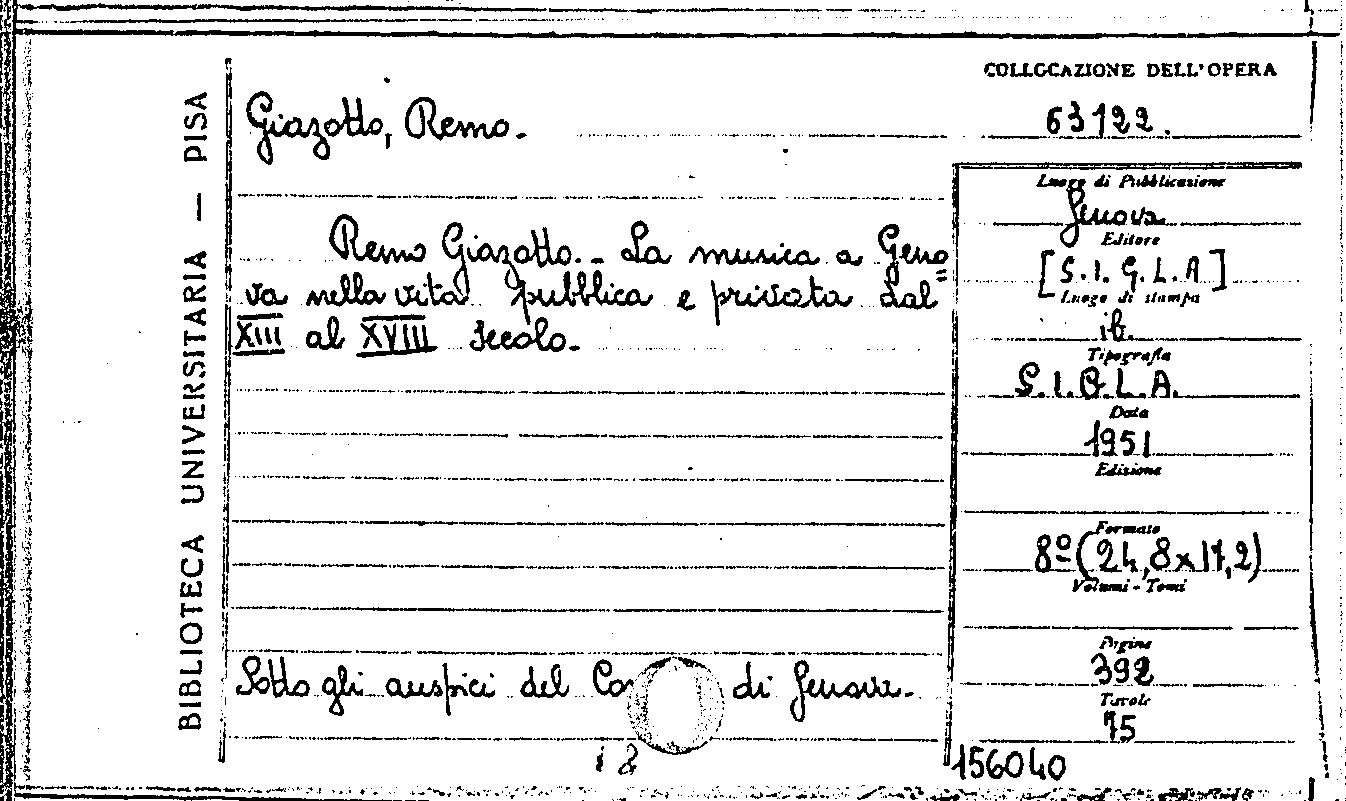 BIBLIOTECA UNIVERSITARIA — PISA
COLLOCAZIONE DELL'OPERA
63122.
Giazotto, Remo.
Remo Giazotto. - La musica a Geno=
va nella vita pubblica e privata dal
XIII al XVIII secolo.
Sotto gli auspici del di Genova.
Luogo di Pubblicazione
Genova
Editore
[S.I.G.L.A]
Luogo di stampa
ib.
Tipografia
S.I.G.L.A.
Data
1951
Edizione
Formato
8º (24,8x17,2)
Volumi - Tomi
Pagine
392
Tavole
75
156040